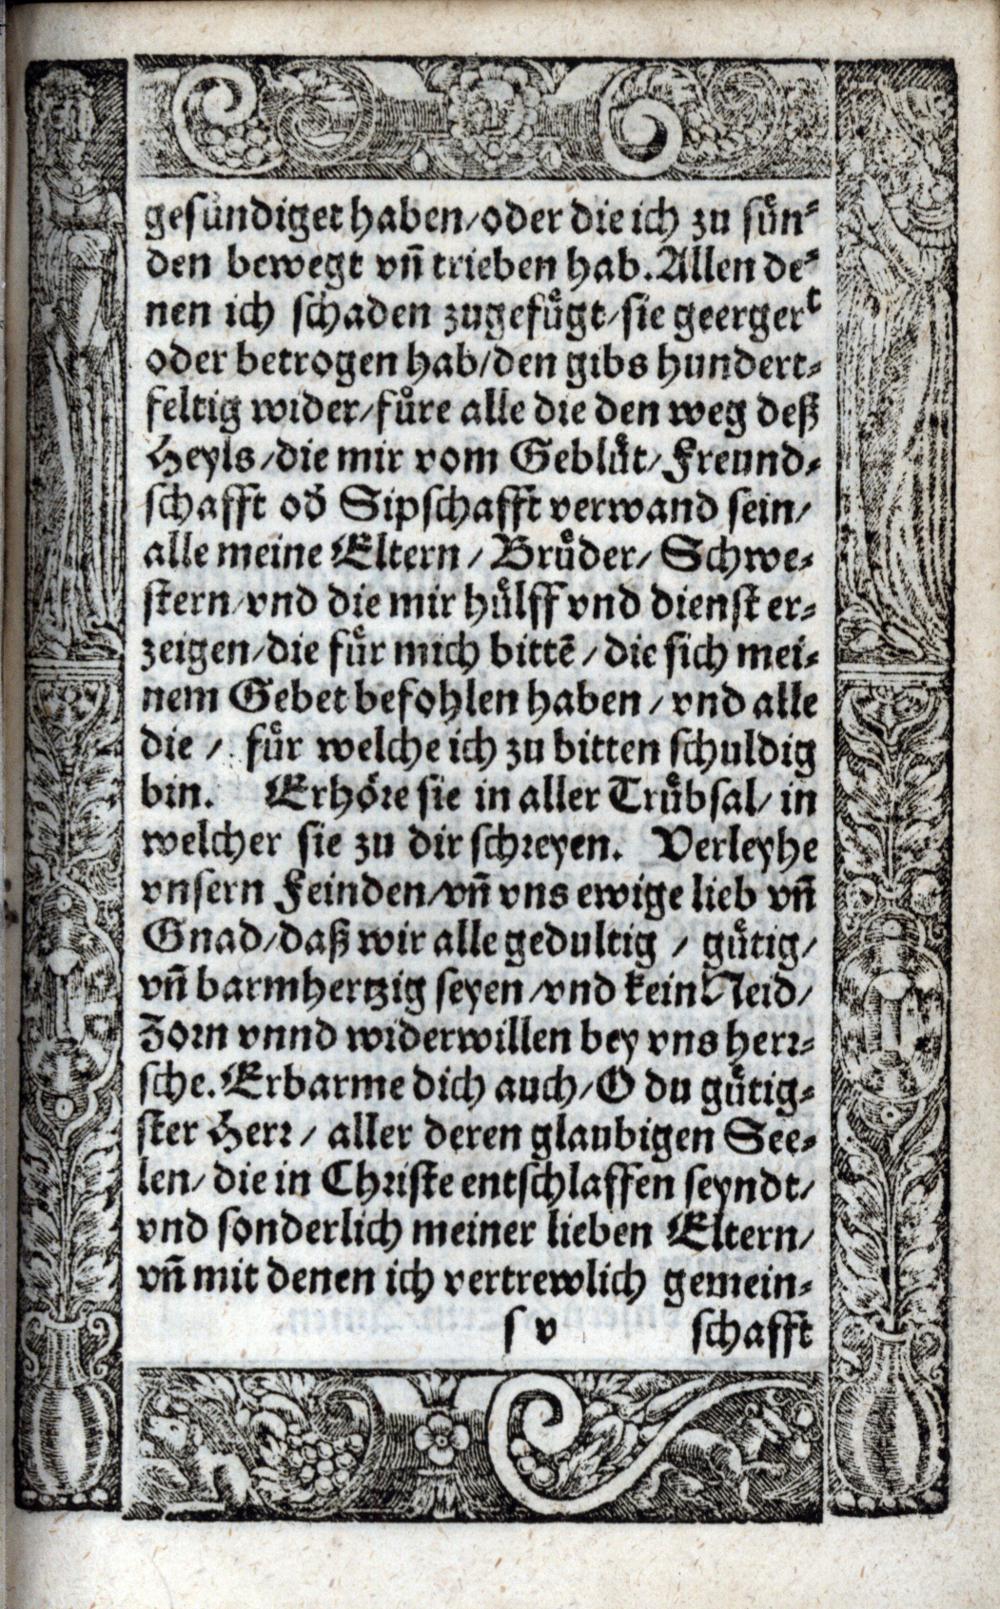 gesündiget haben/oder die ich zu sün⸗
den bewegt vñ trieben hab. Allen de⸗
nen ich schaden zugefuͤgt/sie geergert
oder betrogen hab/den gibs hundert⸗
feltig wider/fuͤre alle die den weg deß
Heyls/die mir vom Gebluͤt/Freund⸗
schafft oď Sipschafft verwand sein/
alle meine Eltern/Bruͤder/Schwe⸗
stern/vnd die mir huͤlff vnd dienst er⸗
zeigen/die fuͤr mich bittẽ/die sich mei⸗
nem Gebet befohlen haben/vnd alle
die/fuͤr welche ich zu bitten schuldig
bin. Erhoͤre sie in aller Truͤbsal/in
welcher sie zu dir schreyen. Verleyhe
vnsern Feinden/vñ vns ewige lieb vñ
Gnad/daß wir alle gedultig/guͤtig/
vñ barmhertzig seyen/vnd kein Neid/
Zorn vnnd widerwillen bey vns herr⸗
sche. Erbarme dich auch/O du guͤtig⸗
ster Herr/aller deren glaubigen See⸗
len/die in Christe entschlaffen seyndt/
vnd sonderlich meiner lieben Eltern/
vñ mit denen ich vertrewlich gemein⸗
s v schafft